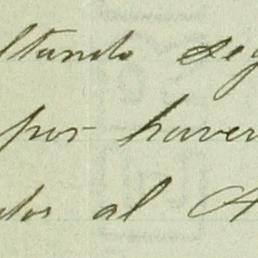 ltando seg
por haver
tos al A